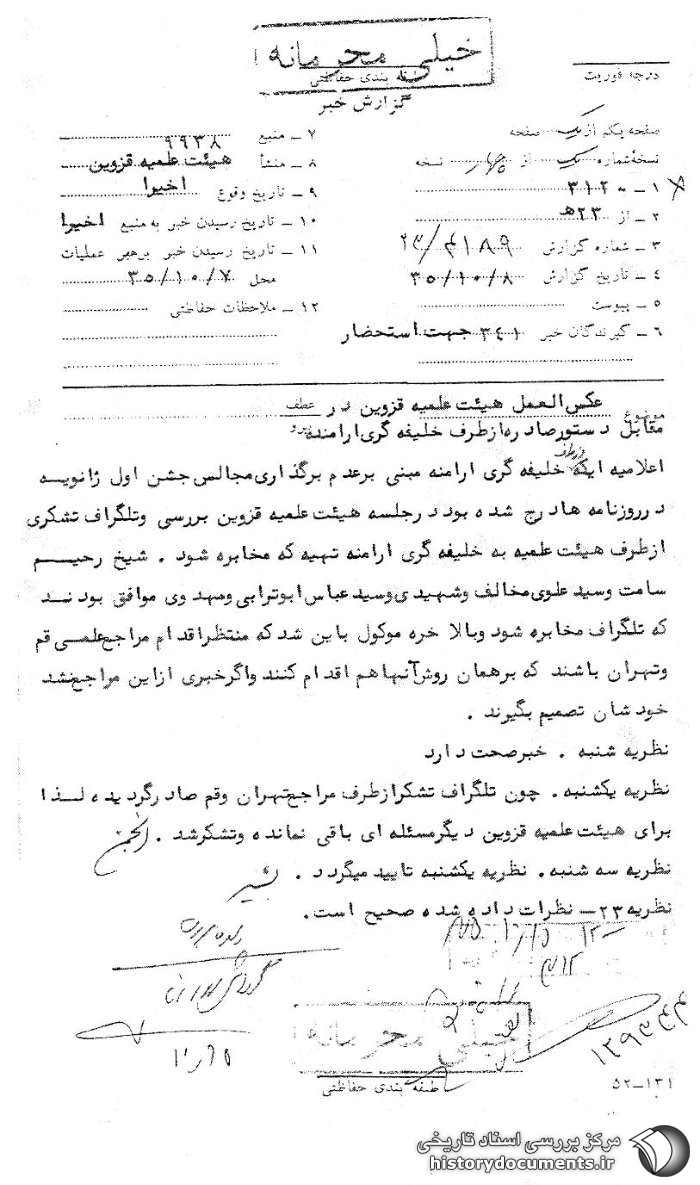 خیلی محرمانه
طبقه بندی حفاظتی
درجه فوریت
گزارش خبر
صفحه یکم از یک صفحه
نسخه شماره یک از چهار نسخه
۱ ـ ۳۱۲۰
۲ ـ از ۲۳ ه‍
۳ ـ شماره گزارش ۲۳/۴۱۸۹
۴ ـ تاریخ گزارش ۳۵/۱۰/۸
۵ ـ پیوست
۶ ـ گیرندگان خبر ۳۴۱ جهت استحضار
۷ ـ منبع ۹۹۳۸
۸ ـ منشأ هیئت علمیه قزوین
۹ ـ تاریخ وقوع اخیرا
۱۰ ـ تاریخ رسیدن خبر به منبع اخیرا
۱۱ ـ تاریخ رسیدن خبر برهبر عملیات
محل ۳۵/۱۰/۷
۱۲ ـ ملاحظات حفاظتی
موضوع عکس العمل هیئت علمیه قزوین در عطف
مقابل دستور صادره از طرف خلیفه گری ارامنه پیرو
اعلامیه ایکه از طرف خلیفه گری ارامنه مبنی بر عدم برگذاری مجالس جشن اول ژانویه
در روزنامه ها درج شده بود در جلسه هیئت علمیه قزوین بررسی و تلگراف تشکری
از طرف هیئت علمیه به خلیفه گری ارامنه تهیه که مخابره شود . شیخ رحیم
سامت و سید علوی مخالف و شهیدی و سید عباس ابوترابی و مهدوی موافق بودند
که تلگراف مخابره شود و بالاخره موکول باین شد که منتظر اقدام مراجع علمی قم
و تهران باشند که بر همان روش آنها هم اقدام کنند و اگر خبری از این مراجع نشد
خودشان تصمیم بگیرند .
نظریه شنبه . خبر صحت دارد
نظریه یکشنبه . چون تلگراف تشکر از طرف مراجع تهران و قم صادر گردیده لذا
برای هیئت علمیه قزوین دیگر مسئله ای باقی نمانده و تشکر شد . انجمن
نظریه سه شنبه . نظریه یکشنبه تایید میگردد .
نظریه ۲۳ ـ نظرات داده شده صحیح است .
خیلی محرمانه
طبقه بندی حفاظتی
۱۲۹۳۴۴۳
۱۳۱ـ۵۲
مرکز بررسی اسناد تاریخی
historydocuments.ir